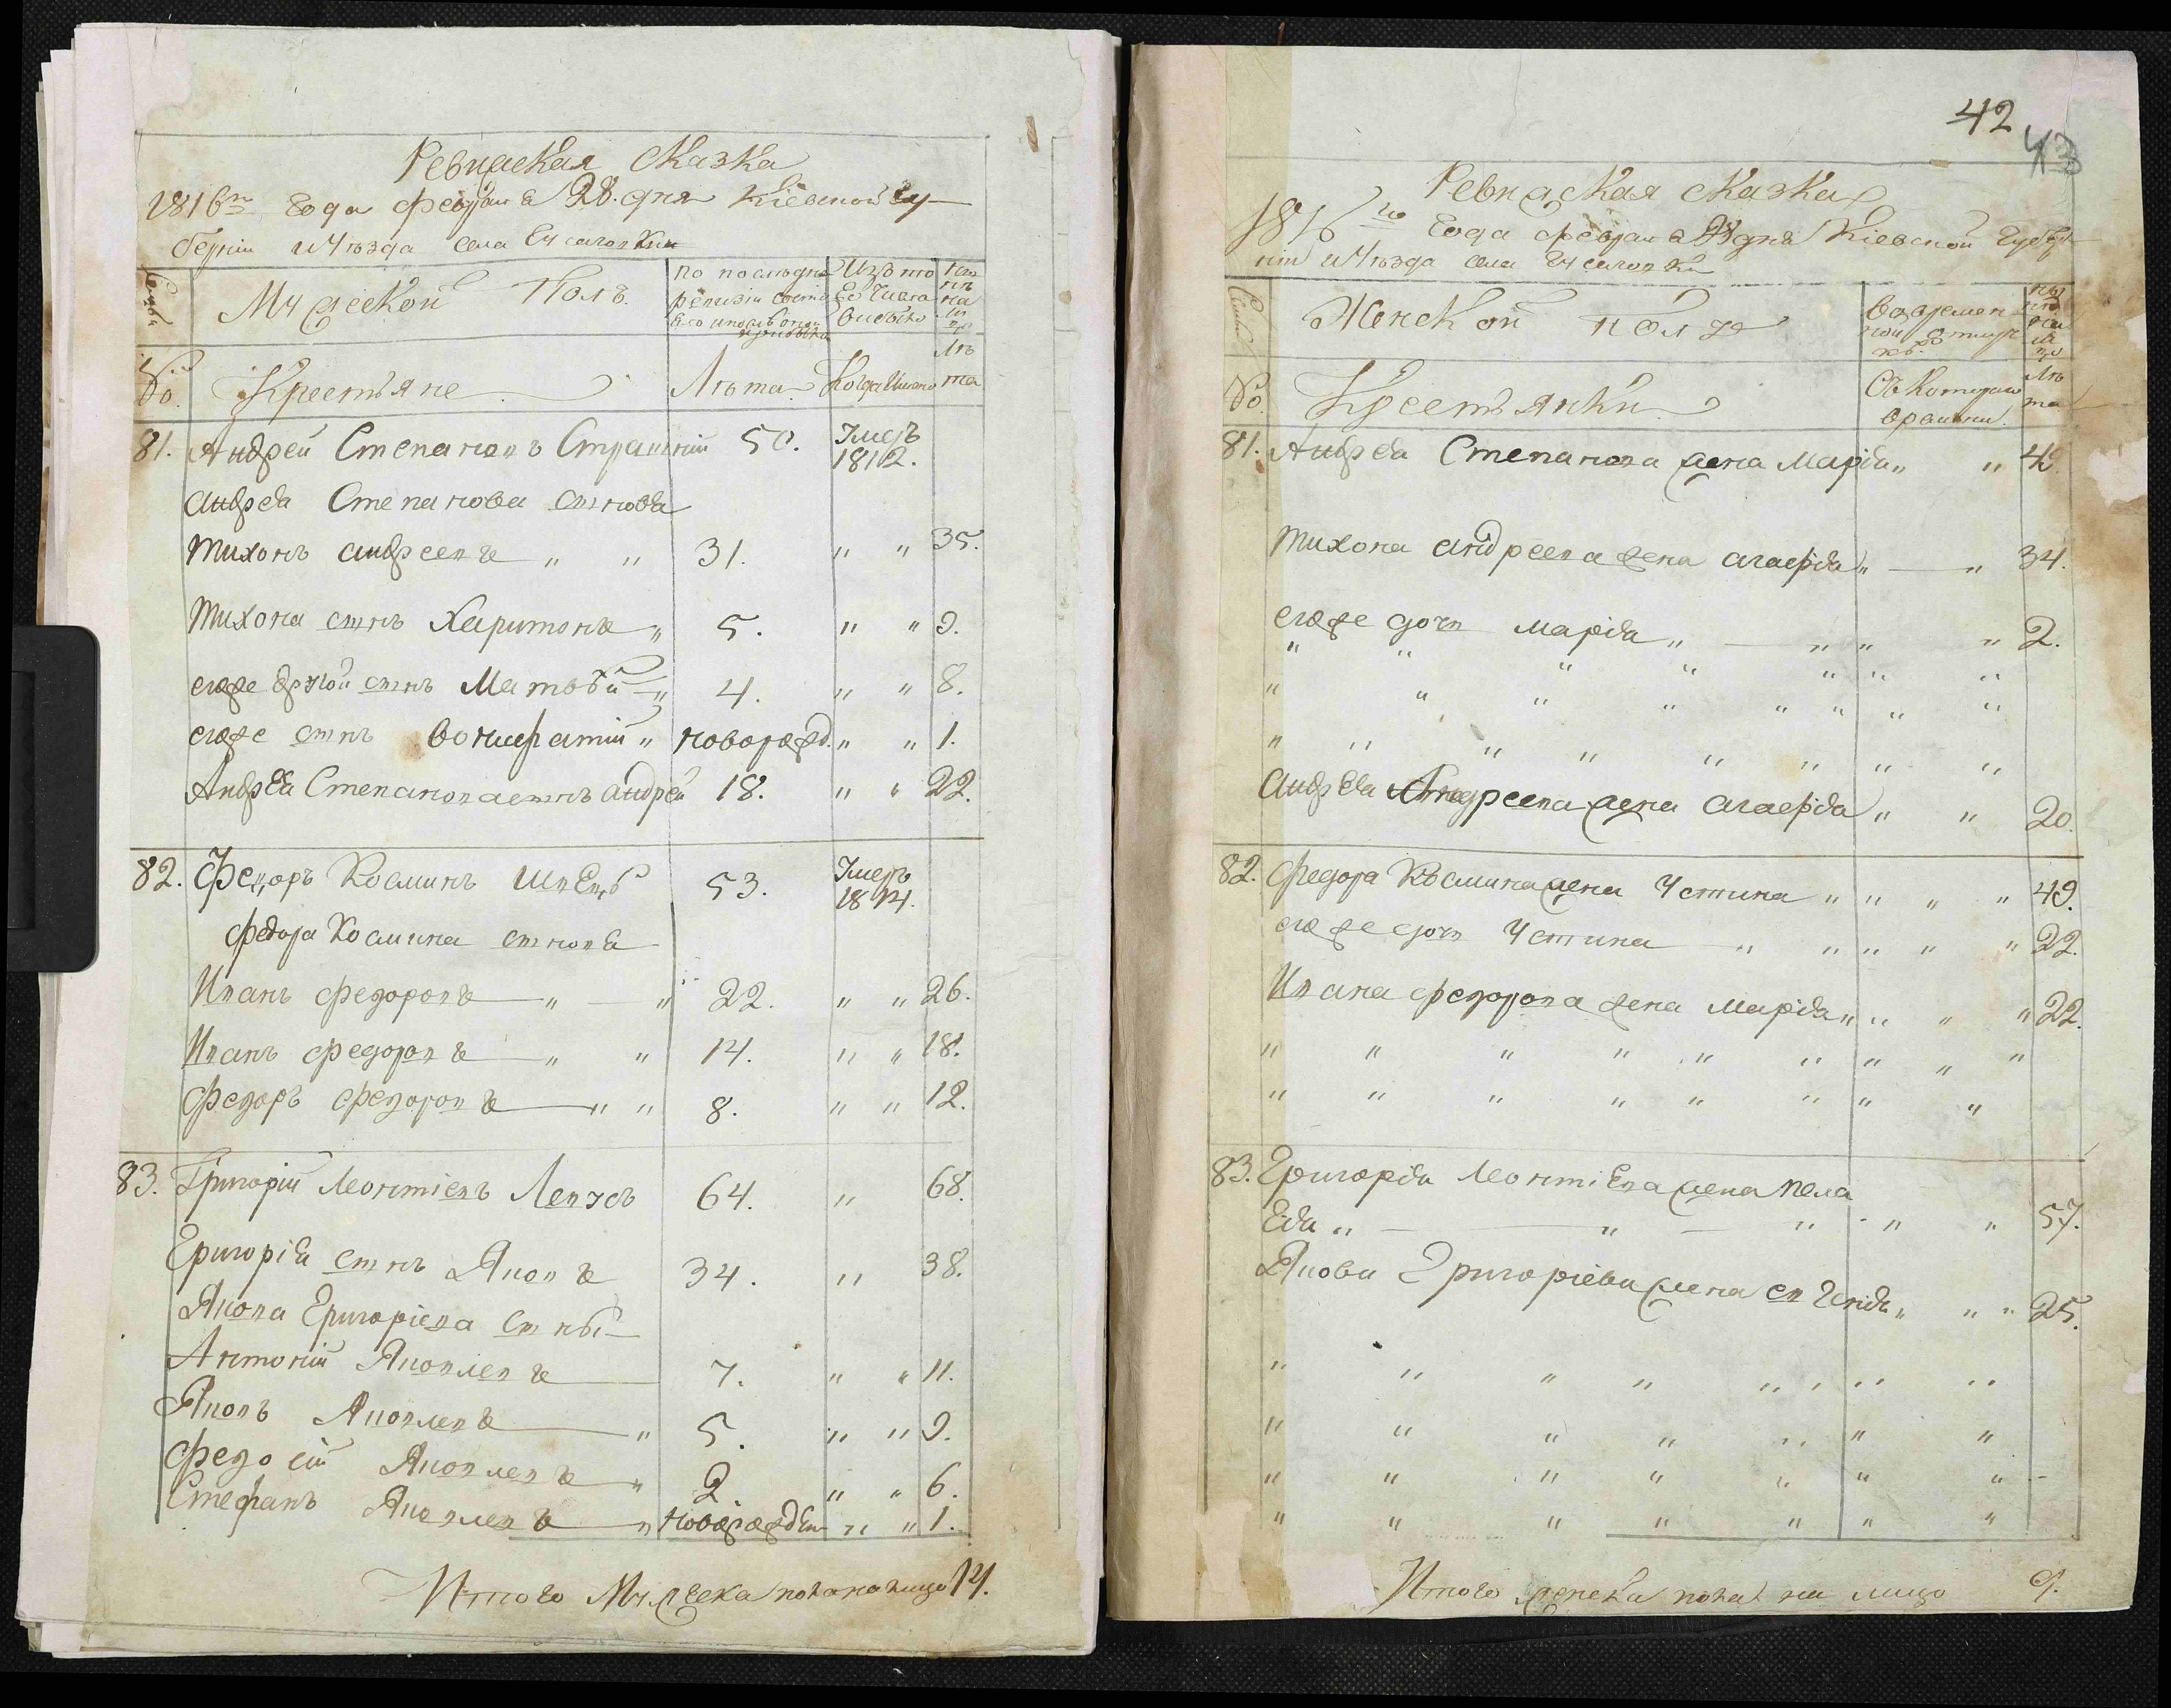 Ревижская сказка
1816го Года февраля 28. дня Кіевской Гу
берніи и Уѣзда села
Мужескои Полъ.
По последне
ревизіи состо
яло и послѣ оной
прибыло
Изъ то
го числа
выбыло
№.
Крестьяне
Лѣта.
Когда имено
Лѣ
та
81. Андрей Степановъ 50. Умеръ
1812.
андрея Степанова сынова
Тихонъ андреевъ " " 31. " " 35.
Тихона сынъ Харитонъ " 5. " " 9.
егоже другой сынъ Матвѣй " 4. " " 8.
егоже сынъ вонифатій " новорожд. " " 1.
Андрея Степанова сынъ андрей 18. " " 22.
82. Федоръ Косминъ Швецъ 53. Умеръ
1814.
федора Космина сынова
Иванъ федоровъ " " 22. " " 26.
Иванъ федоровъ " " 14. " " 18.
федоръ федоровъ " " 8. " " 12.
83. Григорій Леонтіевъ 64. " 68.
Григорія сынъ Яковъ 34. " 38.
Якова Григоріева сыны
Антоній Яковлевъ 7. " " 11.
Яковъ Яковлевъ " 5. " " 9.
Федосій Яковлевъ " 2. " " 6.
Стефанъ Яковлевъ " новорожден " " 1.
Итого Мужеска пола налицо 14.
42
43
Ревижская сказка
1816го Года февраля 28 дня Кіевской Губер
ніи и Уѣзда села
Женской полъ
Во времен
ной отлуч
кѣ.
№.
Крестьянки.
Съ Котораго
времени.
Лѣ
та
81. Андрея Степанова жена Марія " " 42.
Тихона андреева жена агафія " " 34.
егоже дочь марія " " " " 2.
" " " " " " "
" " " " " " " "
" " " " " " " "
андрея Андреева жена агафія " " 20.
82. федора Космина жена Устина " " " " 49.
егоже дочь Устина " " " " " 22.
Ивана федорова жена марія " " " " 22.
" " " " " " " " "
" " " " " " " "
83. Григорія Леонтіева жена Пела
гія " " " " " 57.
Якова Григоріева жена " " " 25.
" " " " " " " "
" " " " " " "
" " " " " " "
" " " " " " "
Итого женска пола на лицо 9.